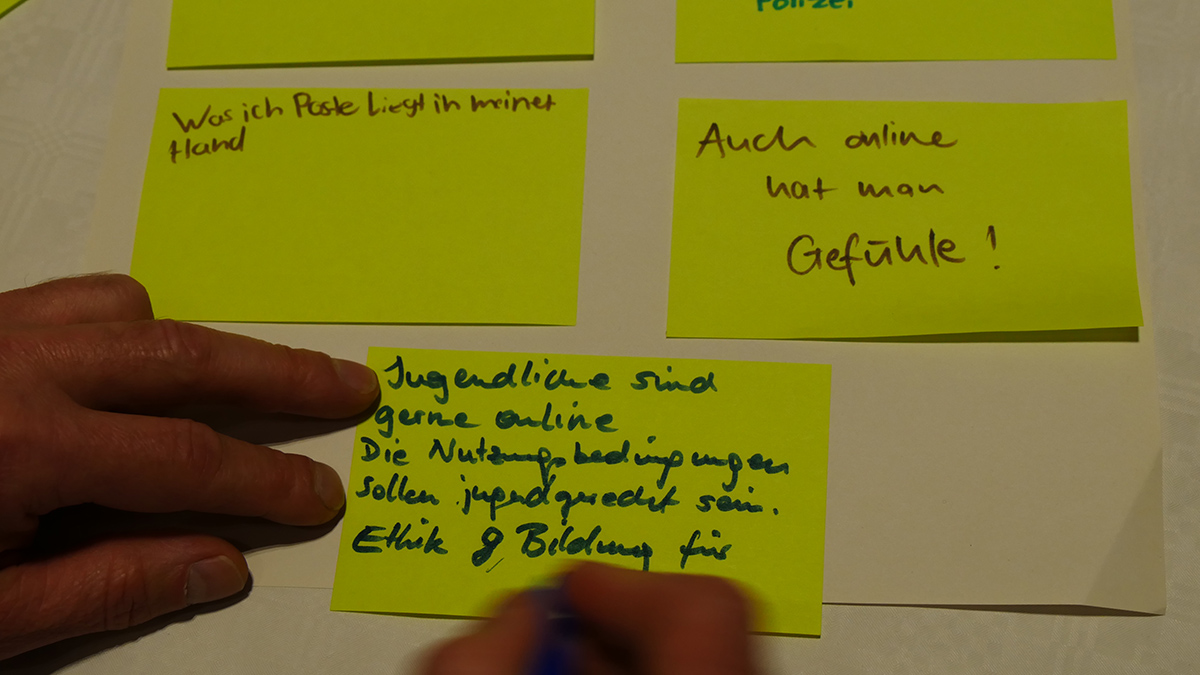 Polizei
Was ich Poste liegt in meiner
Hand
Auch online
hat man
Gefühle!
Jugendliche sind
gerne online
Die Nutzungsbedingungen
sollen jugendgerecht sein.
Ethik & Bildung für